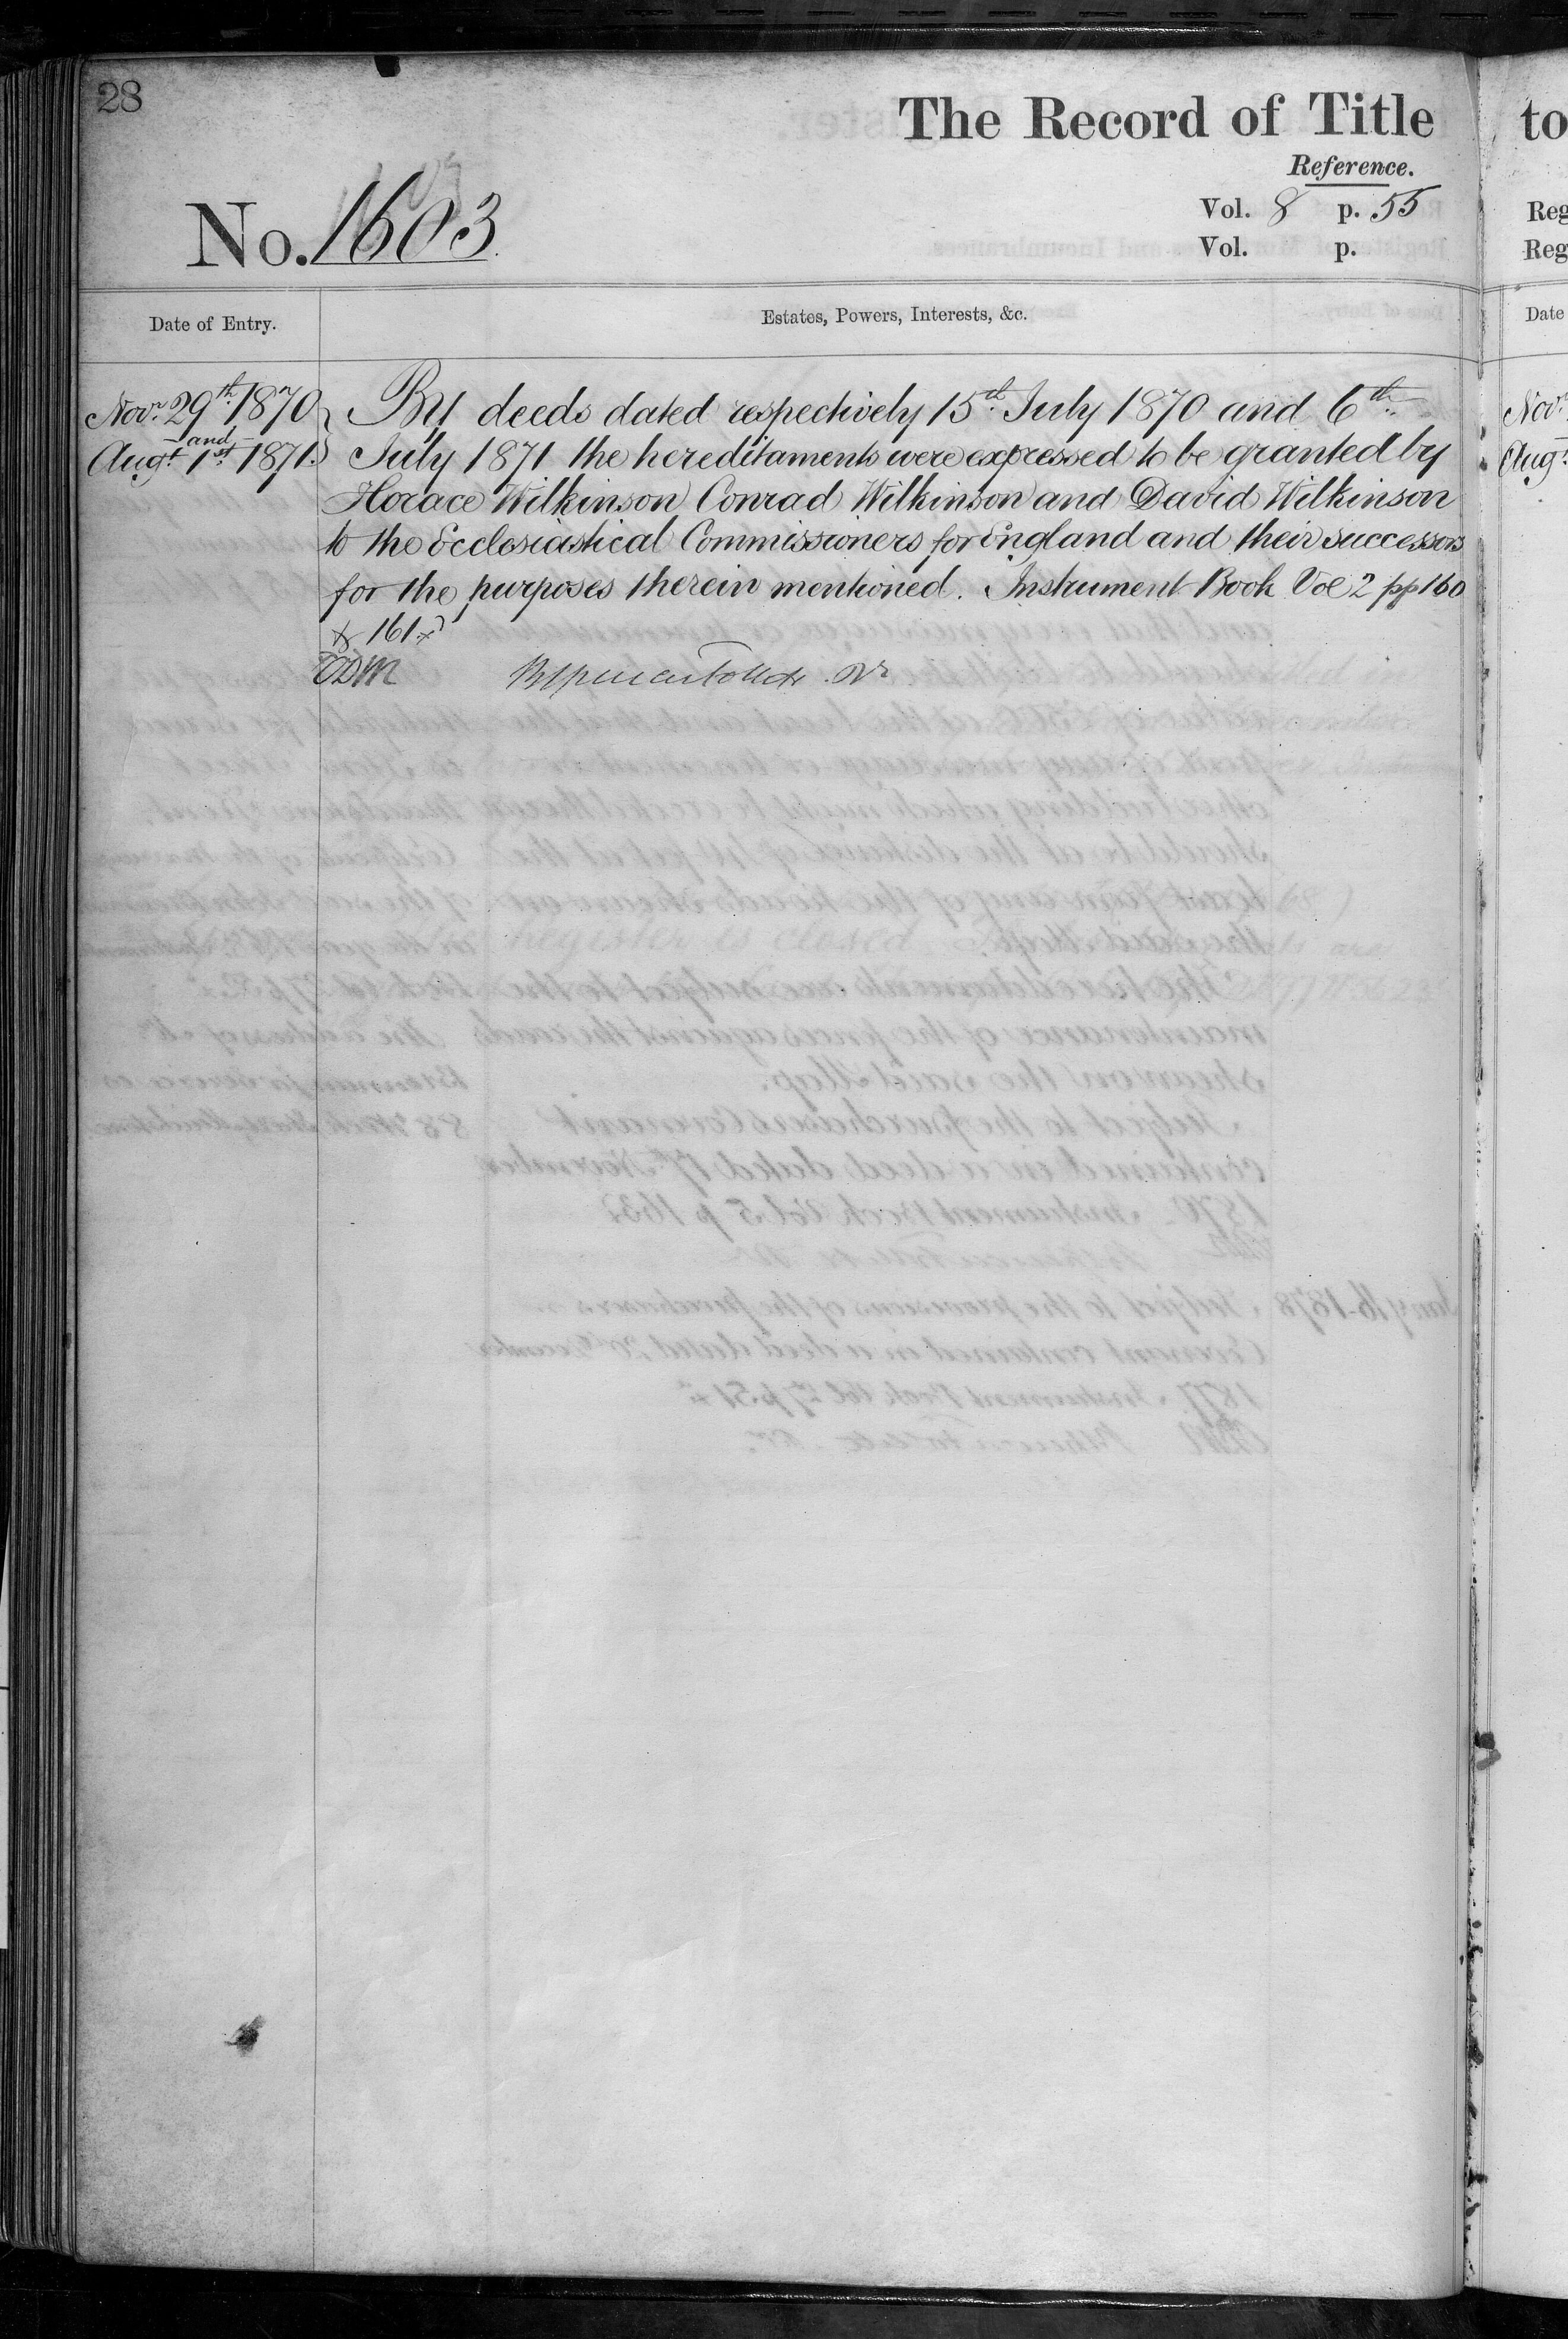 28
The Record of Title
Reference.
No. 1603
Vol. 8 p. 55
Vol. p.
Date of Entry.
Estates, Powers, Interests, &c.
Novr. 29th. 1870
and
Augt. 1st. 1871.
By deeds dated respectively 15th. July 1870 and 6th.
July 1871 the hereditaments were expressed to be granted by
Horace Wilkinson Conrad Wilkinson and David Wilkinson
to the Ecclesiastical Commissioners for England and their successors
for the purposes therein mentioned. Instrument Book Vol 2 pp 160
& 161.
to
Reg
Reg
Date
Novr.
Augt.